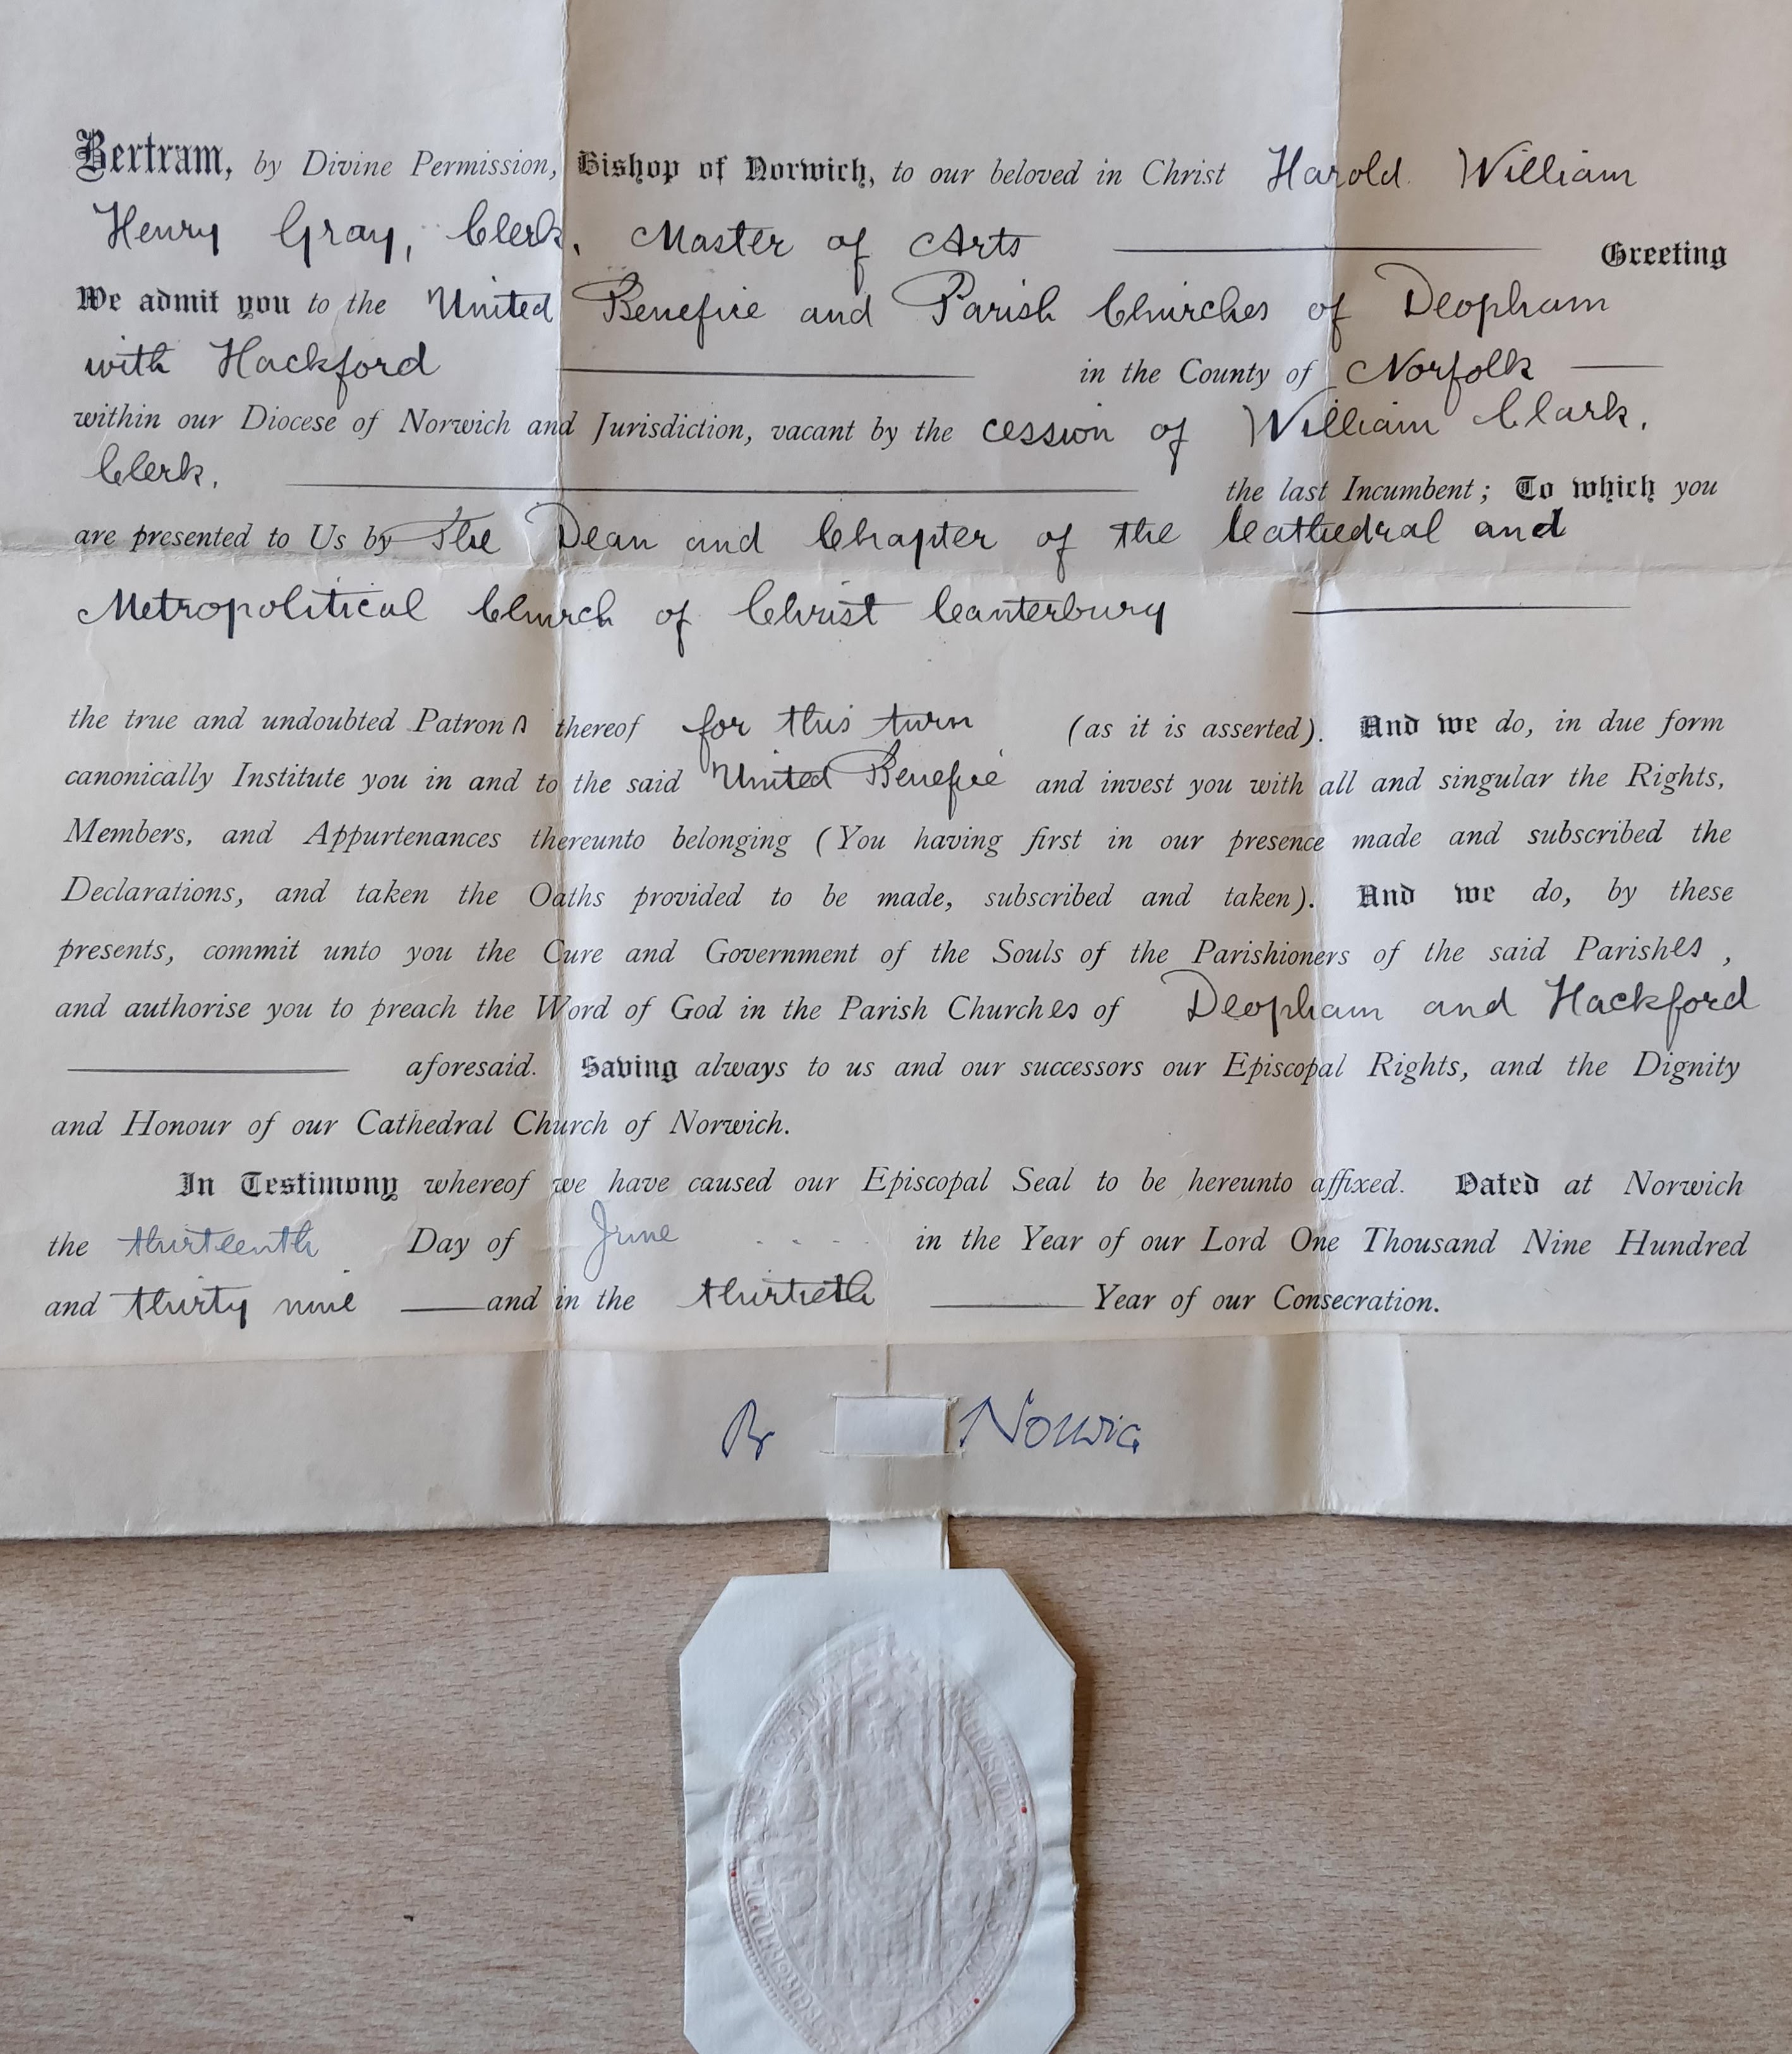 Bertram, by Divine Permission, Bishop of Norwich, to our beloved in Christ Harold William
Henry Gray, Clerk, Master of Arts Greeting
We admit you to the United Benefice and Parish Churches of Deopham
with Hackford in the County of Norfolk
within our Diocese of Norwich and Jurisdiction, vacant by the cession of William Clark,
Clerk, the last Incumbent; To which you
are presented to Us by The Dean and Chapter of the Cathedral and
Metropolitical Church of Christ Canterbury
the true and undoubted Patrons thereof for this turn (as it is asserted). And we do, in due form
canonically Institute you in and to the said United Benefice and invest you with all and singular the Rights,
Members, and Appurtenances thereunto belonging (You having first in our presence made and subscribed the
Declarations, and taken the Oaths provided to be made, subscribed and taken). And we do, by these
presents, commit unto you the Cure and Government of the Souls of the Parishioners of the said Parishes,
and authorise you to preach the Word of God in the Parish Churches of Deopham and Hackford
aforesaid. Saving always to us and our successors our Episcopal Rights, and the Dignity
and Honour of our Cathedral Church of Norwich.
In Testimony whereof we have caused our Episcopal Seal to be hereunto affixed. Dated at Norwich
the thirteenth Day of June in the Year of our Lord One Thousand Nine Hundred
and thirty nine and in the thirtieth Year of our Consecration.
B Norvic